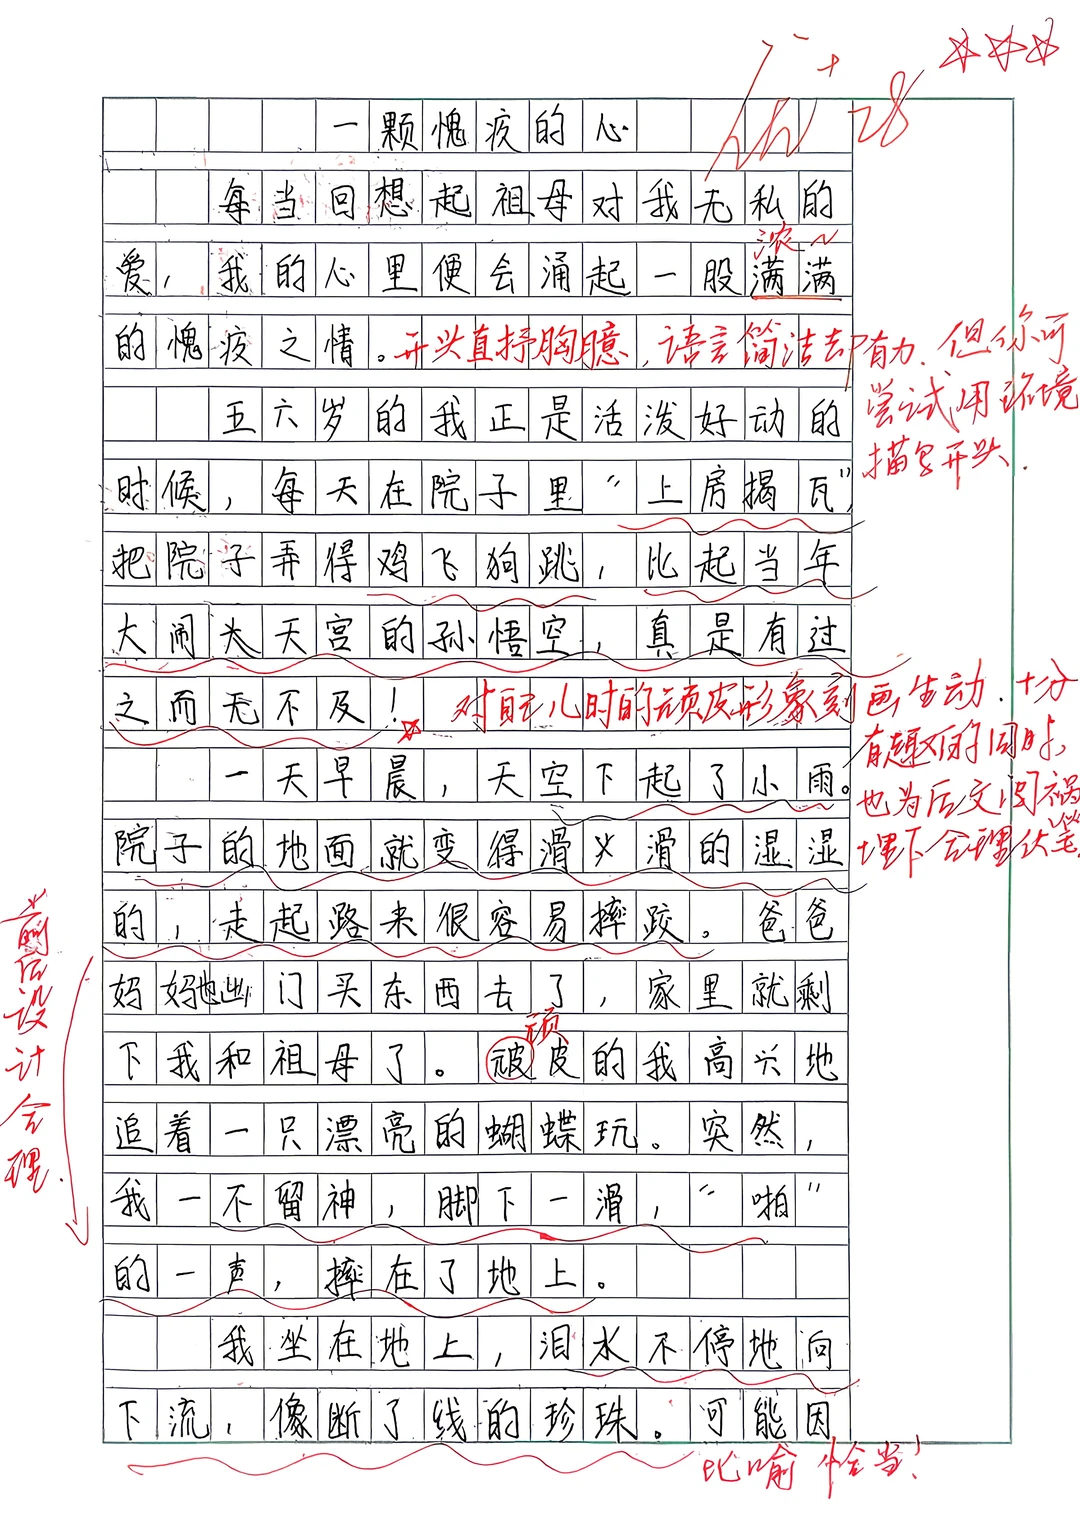 28
一颗愧疚的心
每当回想起祖母对我无私的
浓~
爱，我的心里便会涌起一股满满
的愧疚之情。开头直抒胸臆，语言简洁却有力．但你可
尝试用环境
描写开头．
五六岁的我正是活泼好动的
时候，每天在院子里“上房揭瓦”，
把院子弄得鸡飞狗跳，比起当年
大闹天宫的孙悟空，真是有过
之而无不及！对自己儿时的顽皮形象刻画生动．十分
有趣的同时，
也为后文闯祸
埋下合理伏笔．
一天早晨，天空下起了小雨。
院子的地面就变得滑滑的湿湿
的，走起路来很容易摔跤。爸爸
妈妈出门买东西去了，家里就剩
顽
下我和祖母了。皮的我高兴地
追着一只漂亮的蝴蝶玩。突然，
我一不留神，脚下一滑，“啪”
的一声，摔在了地上。
前后设计合理．
我坐在地上，泪水不停地向
下流，像断了线的珍珠。可能因
比喻恰当！